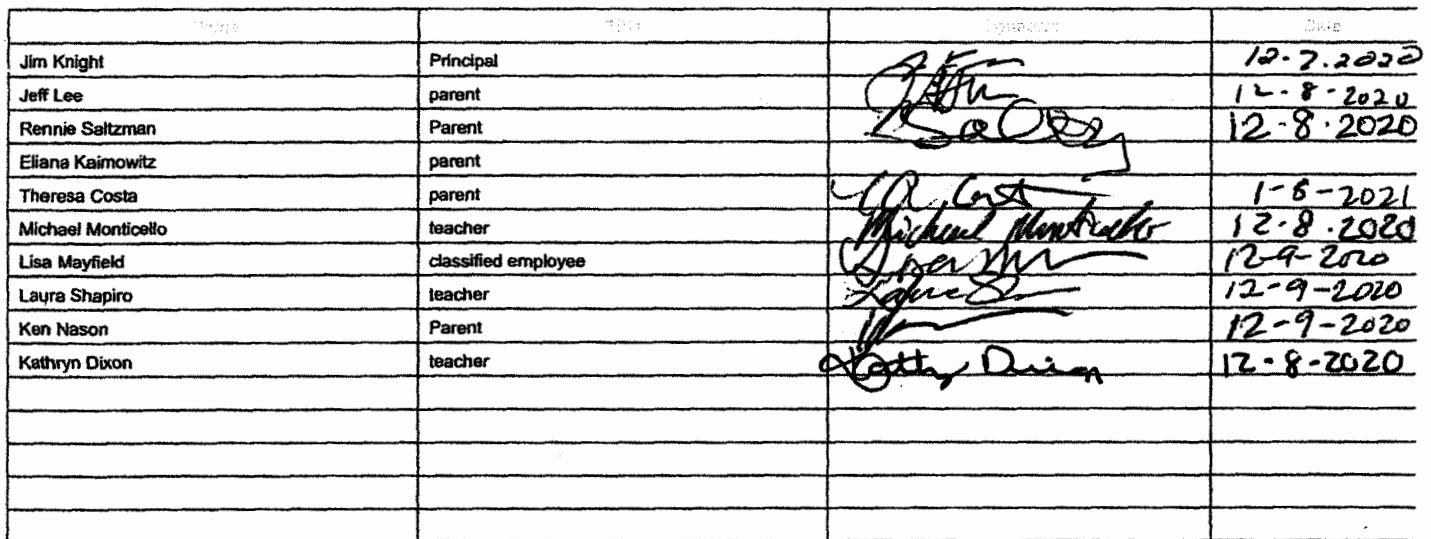 Name Title Signature Date
Jim Knight Principal 12-7-2020
Jeff Lee parent 12-8-2020
Rennie Saltzman Parent 12-8-2020
Eliana Kaimowitz parent
Theresa Costa parent 1-8-2021
Michael Monticello teacher Michael Monticello 12-8-2020
Lisa Mayfield classified employee 12-9-2020
Laura Shapiro teacher 12-9-2020
Ken Nason Parent 12-9-2020
Kathryn Dixon teacher Kathy Dixon 12-8-2020